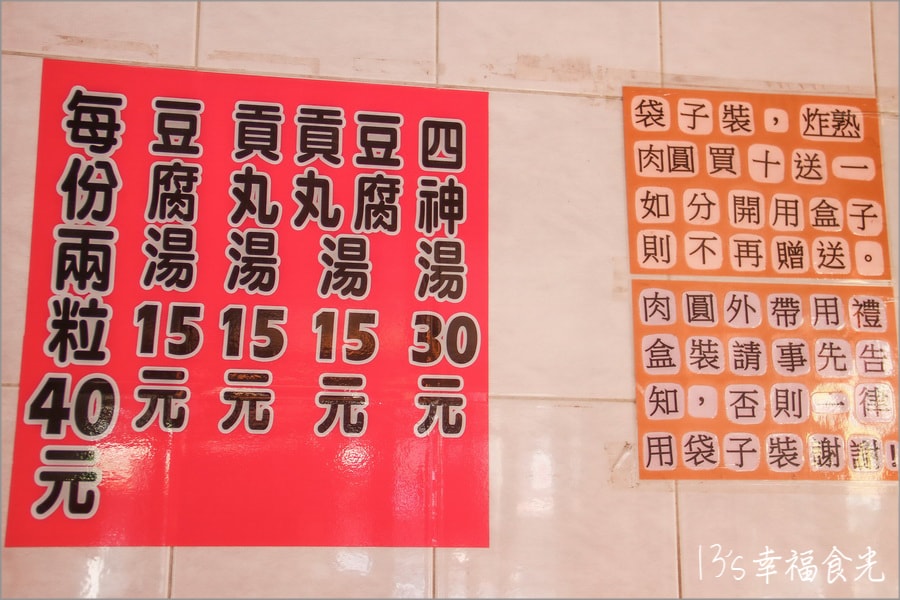 四神湯30元
豆腐貢丸湯15元
貢丸湯15元
豆腐湯15元
每份兩粒40元
袋子裝，炸熟
肉圓買十送一
如分開用盒子
則不再贈送。
肉圓外帶用禮
盒裝請事先告
知，否則一律
用袋子裝謝謝!
13's幸福食光